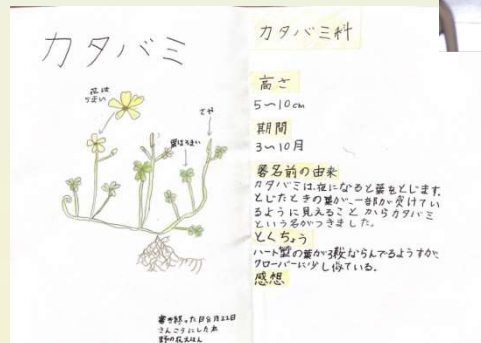 カタバミ
花は
うすい
さや
葉はうすい
書き終った日8月22日
さんこうにした本
野の花えほん
カタバミ科
高さ
5〜10cm
期間
3〜10月
名前の由来
カタバミは、夜になると葉をとじます。
とじたときの葉が、一部が欠けてい
るように見えることからカタバミ
という名がつきました。
とくちょう
ハート型の葉が3枚ならんでるようすが、
クローバーに少し似ている。
感想